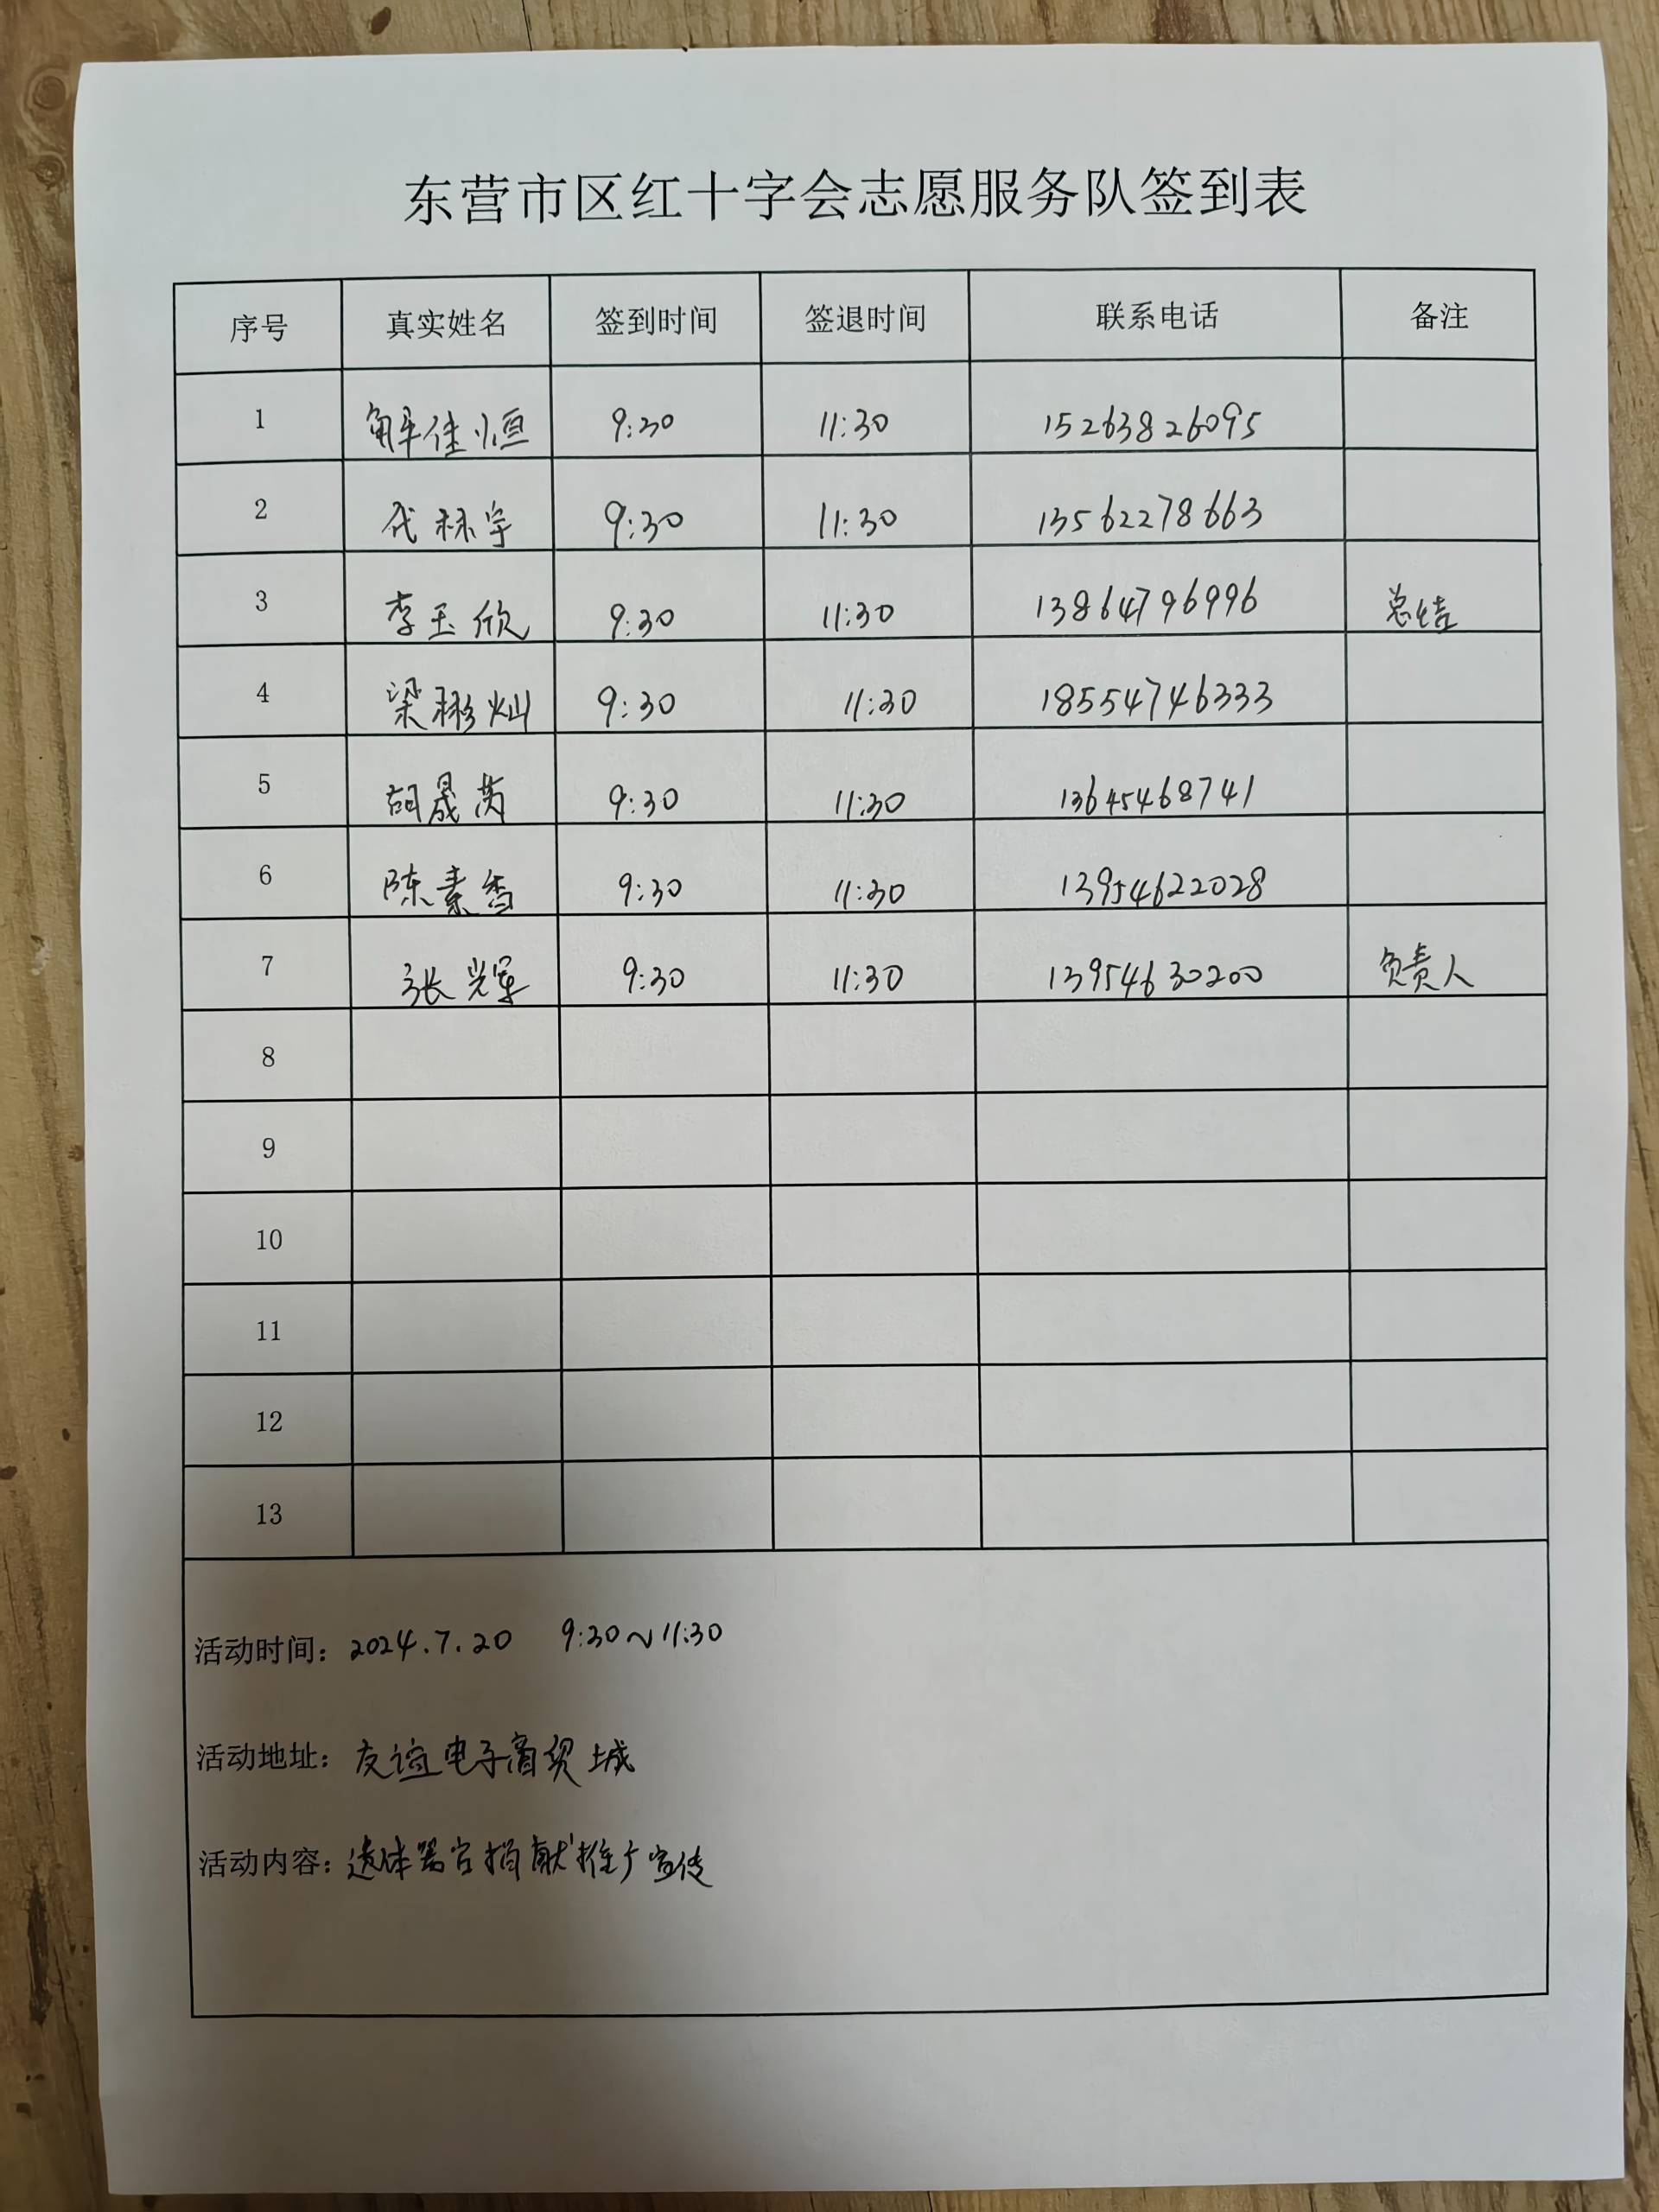 东营市区红十字会志愿服务队签到表
序号 真实姓名 签到时间 签退时间 联系电话 备注
1 解佳恒 9:30 11:30 15263826095
2 代林宇 9:30 11:30 13562278663
3 李玉欣 9:30 11:30 13864796996 总结
4 梁彬灿 9:30 11:30 18554746333
5 胡晟芮 9:30 11:30 13645468741
6 陈素香 9:30 11:30 13954622028
7 张光军 9:30 11:30 13954630200 负责人
8
9
10
11
12
13
活动时间：2024.7.20 9:30~11:30
活动地址：友谊电子商贸城
活动内容：遗体器官捐献推广宣传